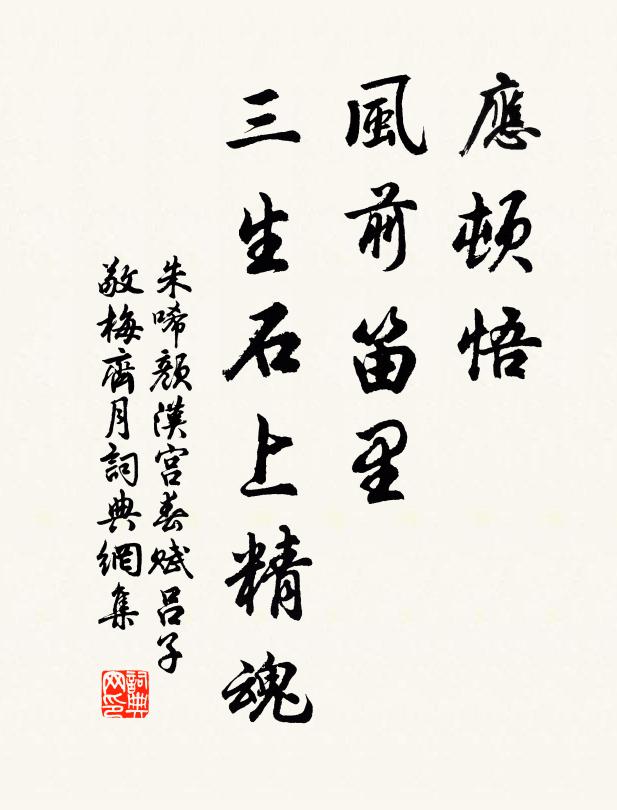 應頓悟
風前笛里
三生石上精魂
朱唏顏漢宮春賦呂子
敬梅齊月詞典網集
詞典
网印